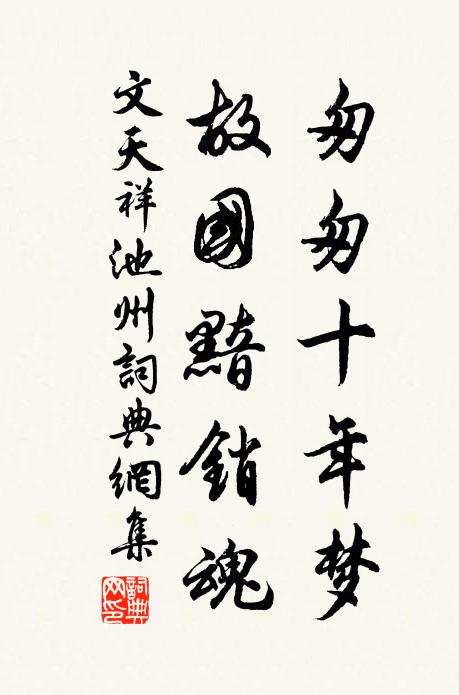 匆匆十年梦
故國黯銷魂
文天祥池州詞典網集
詞典網印